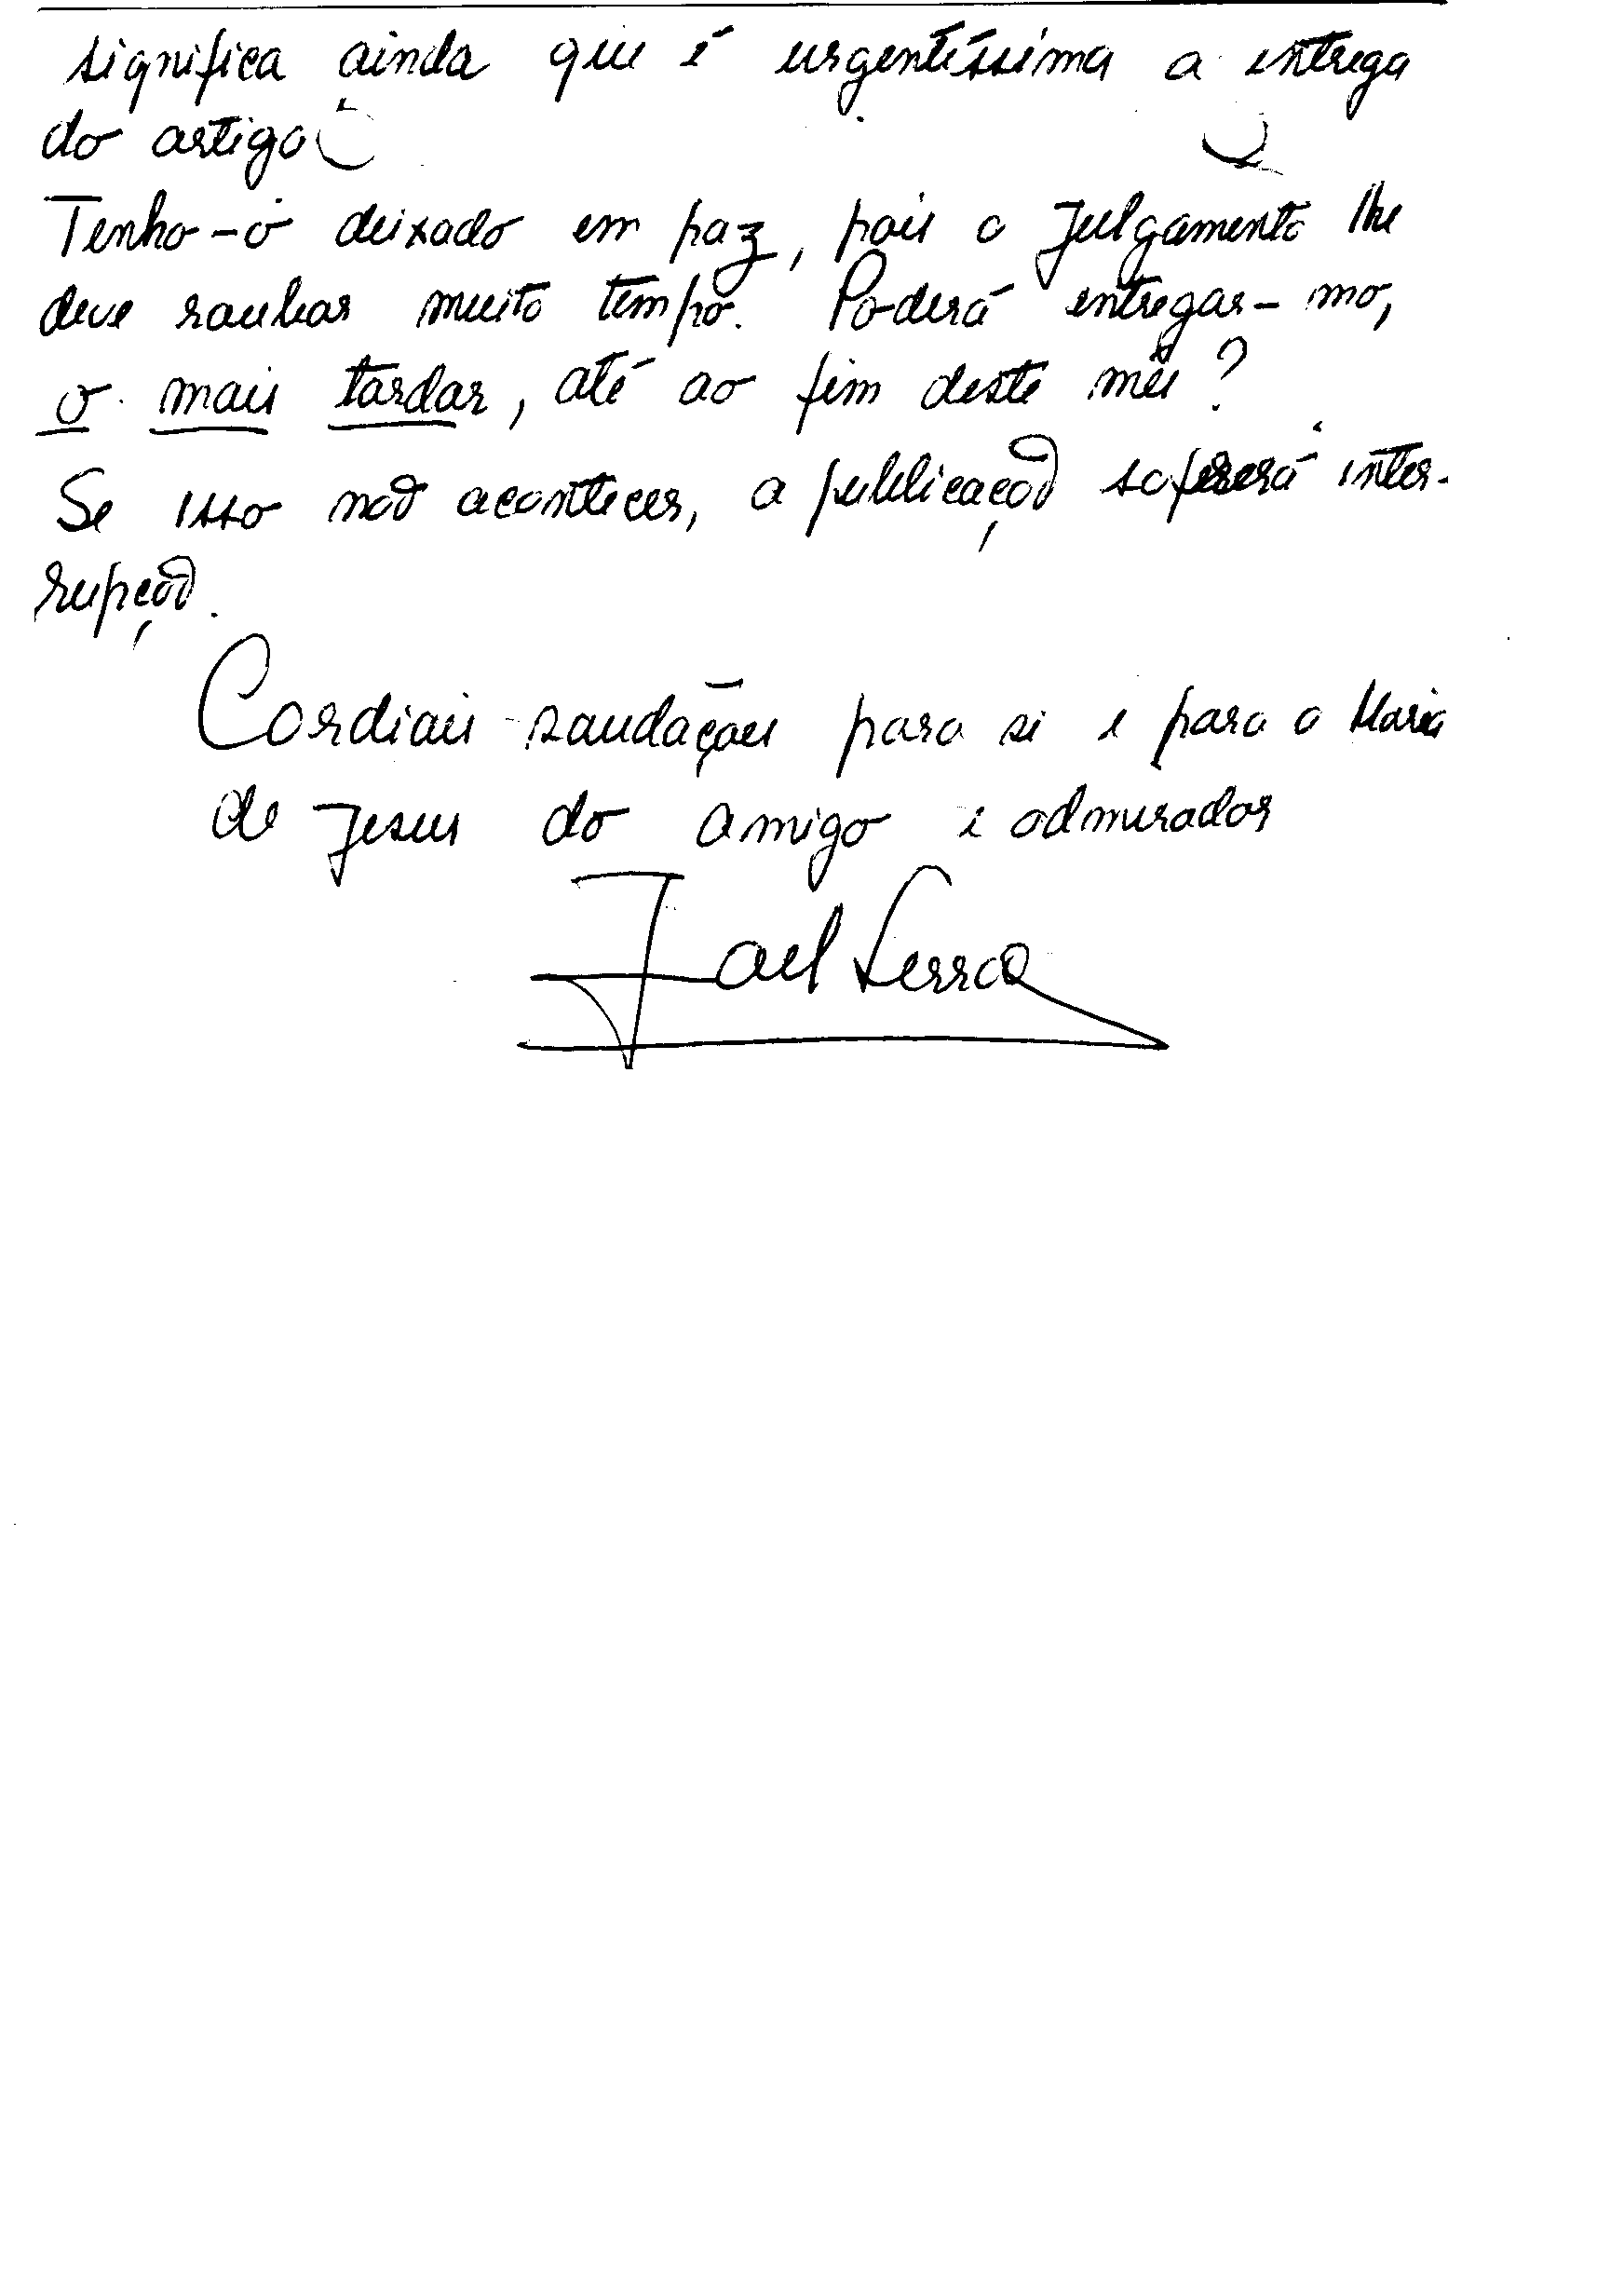 significa ainda que é urgentíssima a entrega
do artigo
Tenho-o deixado em paz, pois o julgamento lhe
deve roubar muito tempo. Poderá entregar-mo,
o mais tardar, até ao fim deste mês?
Se isso não acontecer, a publicação sofrerá inter-
rupção.
Cordiais saudações para si e para a Maria
de Jesus do amigo e admirador
Joel Serrão